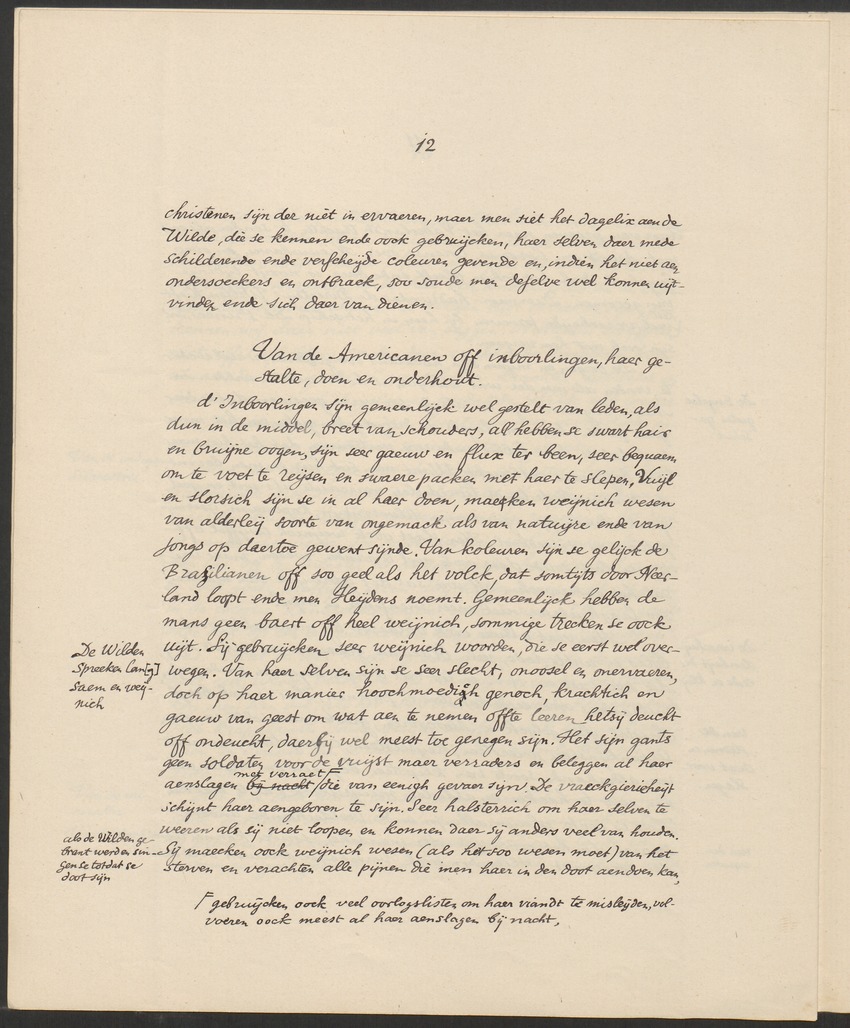 12
christenen sijn der niet in ervaeren, maer men siet het dagelix aen de
Wilde, die se kennen ende oock gebruijcken, haer selven daer mede
schilderende ende verscheijde coleuren gevende en, indien het niet aen
ondersoeckers en ontbrack, soo soude men deselve wel konnen uijt-
vinden ende sich daer van dienen.
Van de Americanen off inboorlingen, haer ge-
stalte, doen en onderhout.
d' Inboorlingen sijn gemeenlijck wel gestelt van leden, als
dun in de middel, breet van schouders, all hebben se swart hair
en bruijne oogen, sijn seer gaeuw en flux ter been, seer bequaem
om te voet te reijsen en swaere packen met haer te slepen. Vuijl
en slorsich sijn se in al haer doen, maeken weijnich wesen
van alderleij soorte van ongemack als van natuijre ende van
jongs op daertoe gewent sijnde. Van koleuren sijn se gelijck de
Brazilianen off soo geel als het volck, dat somtijts door Neer-
land loopt ende men Heijdens noemt. Gemeenlijck hebben de
mans geen baert off heel weijnich, sommige trecken se oock
uijt. Sij gebruijcken seer weijnich woorden, die se eerst wel over-
De Wilden
spreeken lan[g]
saem en weij-
nich
wegen. Van haer selven sijn se seer slecht, onoosel en onervaeren,
doch op haer manier hoochmoedich genoch, krachtich en
gaeuw van geest om wat aen te nemen offte leeren hetsij deucht
off ondeucht, daerbij wel meest toe genegen sijn. Het sijn gants
geen soldaten voor de vuijst maer verraders en beleggen al haer
met verraet F
aenslagen bij nacht / die van eenigh gevaer sijn. De vraeckgierieheijt
schijnt haer aengeboren te sijn. Seer halsterrich om haer selven te
weeren als sij niet loopen en konnen daer sij anders veel van houden.
als de Wilden ge
brant werden sin-
gen se totdat se
doot sijn
Sij maecken oock weijnich wesen (als het soo wesen moet) van het
sterven en verachten alle pijnen die men haer in den doot aendoen kan,
F gebruijcken oock veel oorlogslisten om haer viandt te misleijden, vol-
voeren oock meest al haer aenslagen bij nacht,